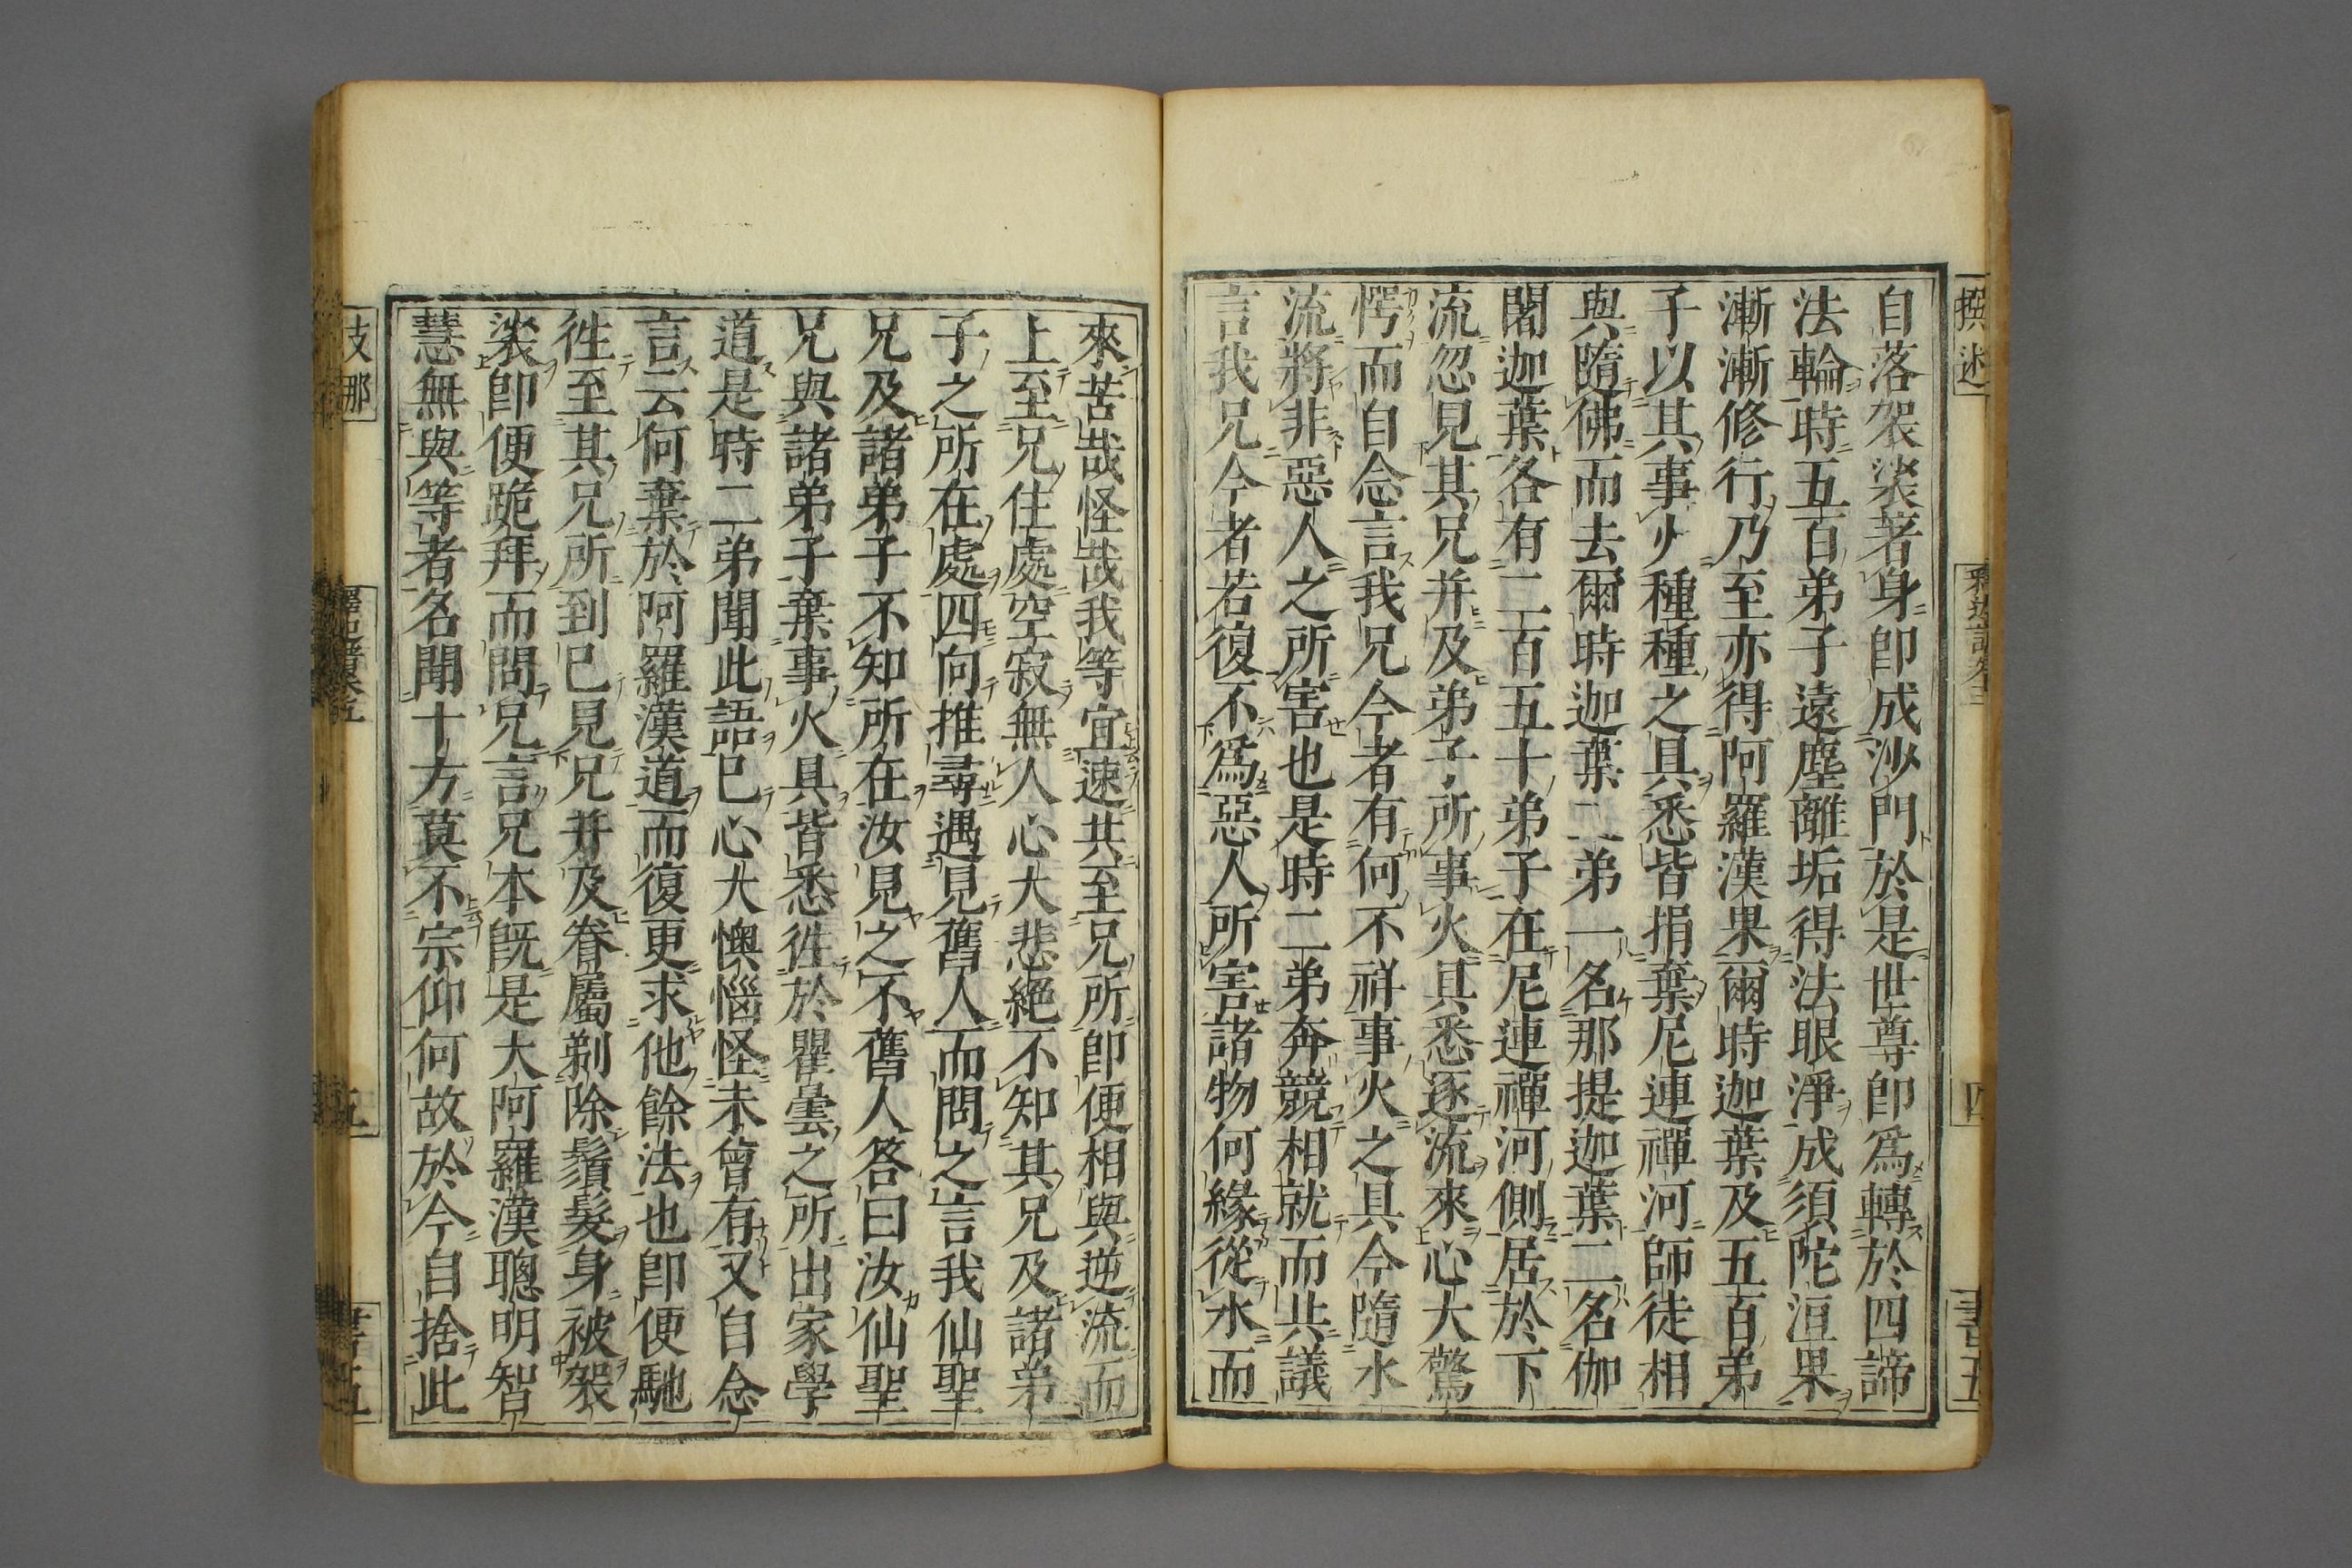 撰述
釋迦譜卷三
四
書五
自落袈裟著身卽成沙門於是世尊卽爲轉於四諦
法輪時五百弟子遠塵離垢得法眼淨成須陀洹果
漸漸修行乃至亦得阿羅漢果爾時迦葉及五百弟
子以其事火種種之具悉皆捐棄尼連禪河師徒相
與隨佛而去爾時迦葉二弟一名那提迦葉二名伽
闍迦葉各有二百五十弟子在尼連禪河側居於下
流忽見其兄并及弟子所事火具悉逐流來心大驚
愕而自念言我兄今者有何不祥事火之具今隨水
流將非惡人之所害也是時二弟奔競相就而共議
言我兄今者若復不爲惡人所害諸物何緣從水而
來苦哉怪哉我等宜速共至兄所卽便相與逆流而
上至兄住處空寂無人心大悲絕不知其兄及諸弟
子之所在處四向推尋遇見舊人而問之言我仙聖
兄及諸弟子不知所在汝見之不舊人答曰汝仙聖
兄與諸弟子棄事火具皆悉徃於瞿曇之所出家學
道是時二弟聞此語已心大懊惱怪未曾有又自念
言云何棄於阿羅漢道而復更求他餘法也卽便馳
徃至其兄所到已見兄并及眷屬剃除鬚髮身被袈
裟卽便跪拜而問兄言兄本旣是大阿羅漢聰明智
慧無與等者名聞十方莫不宗仰何故於今自捨此
支那
五
書五